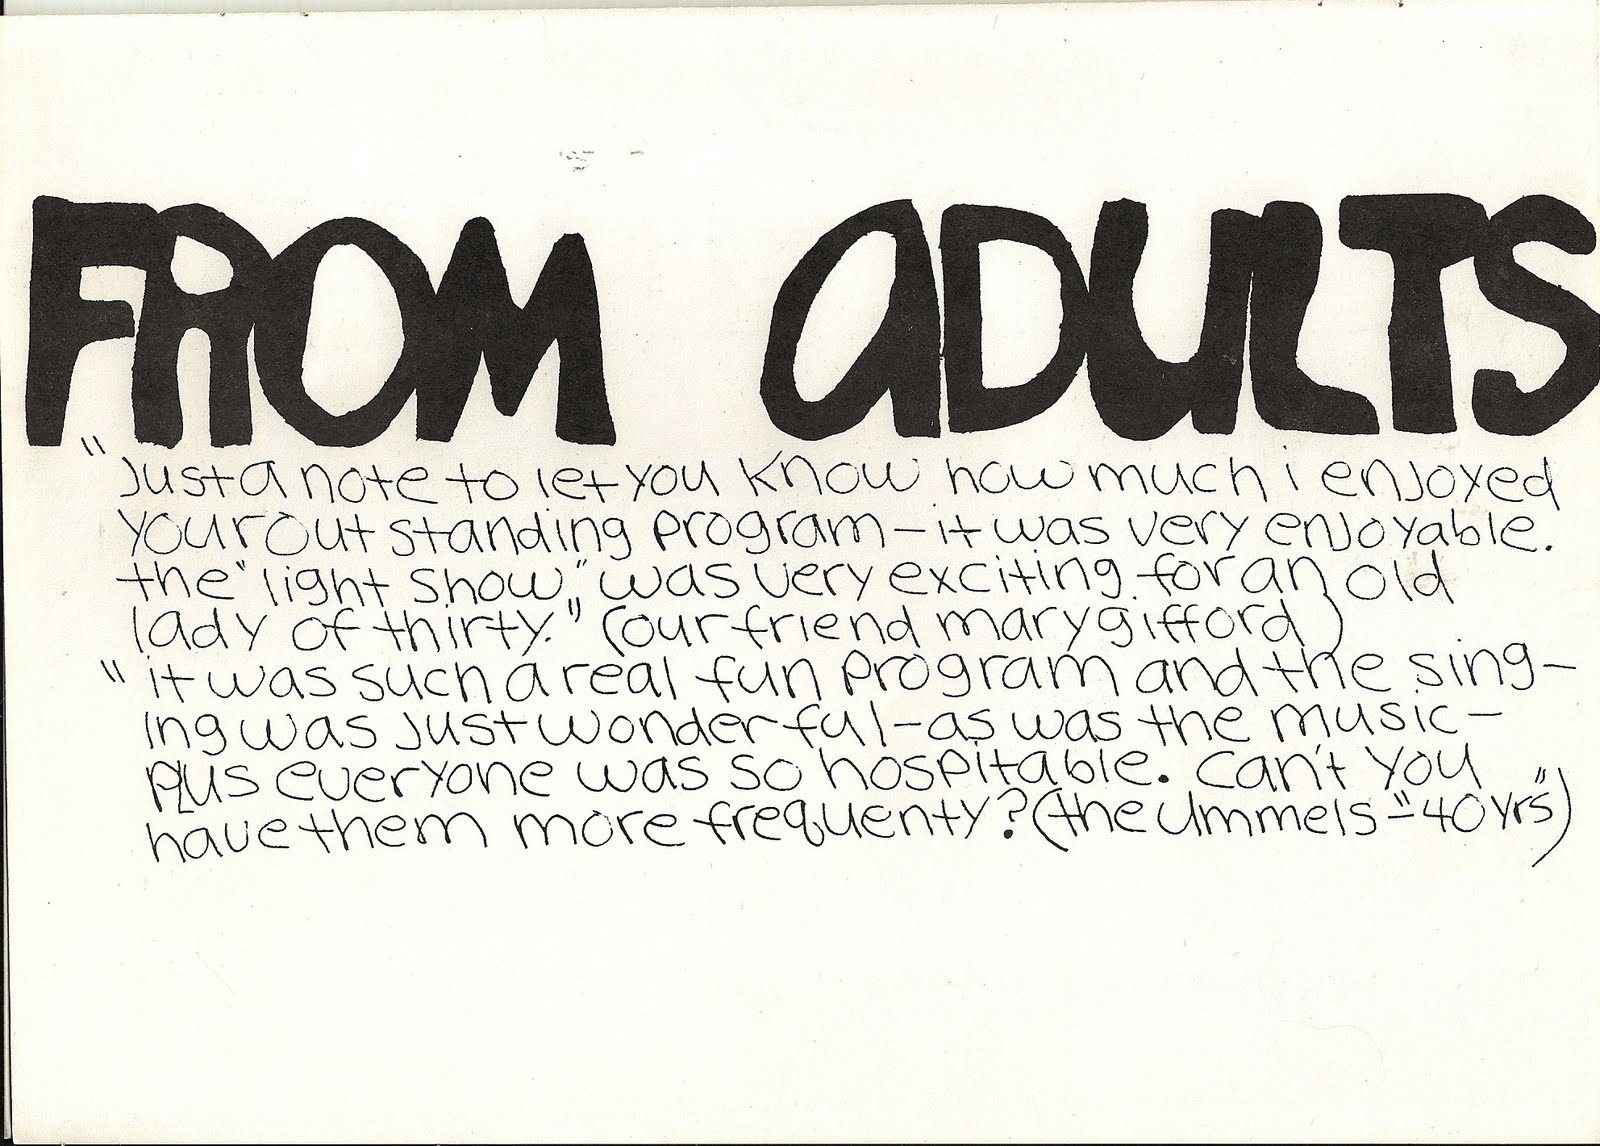 FROM ADULTS
"just a note to let you know how much i enjoyed
your out standing program – it was very enjoyable.
the "light show," was very exciting for an old
lady of thirty." (our friend mary gifford)
"it was such a real fun program and the sing–
ing was just wonderful – as was the music –
plus everyone was so hospitable. can't you
have them more frequenty? (the ummels – "40 yrs")